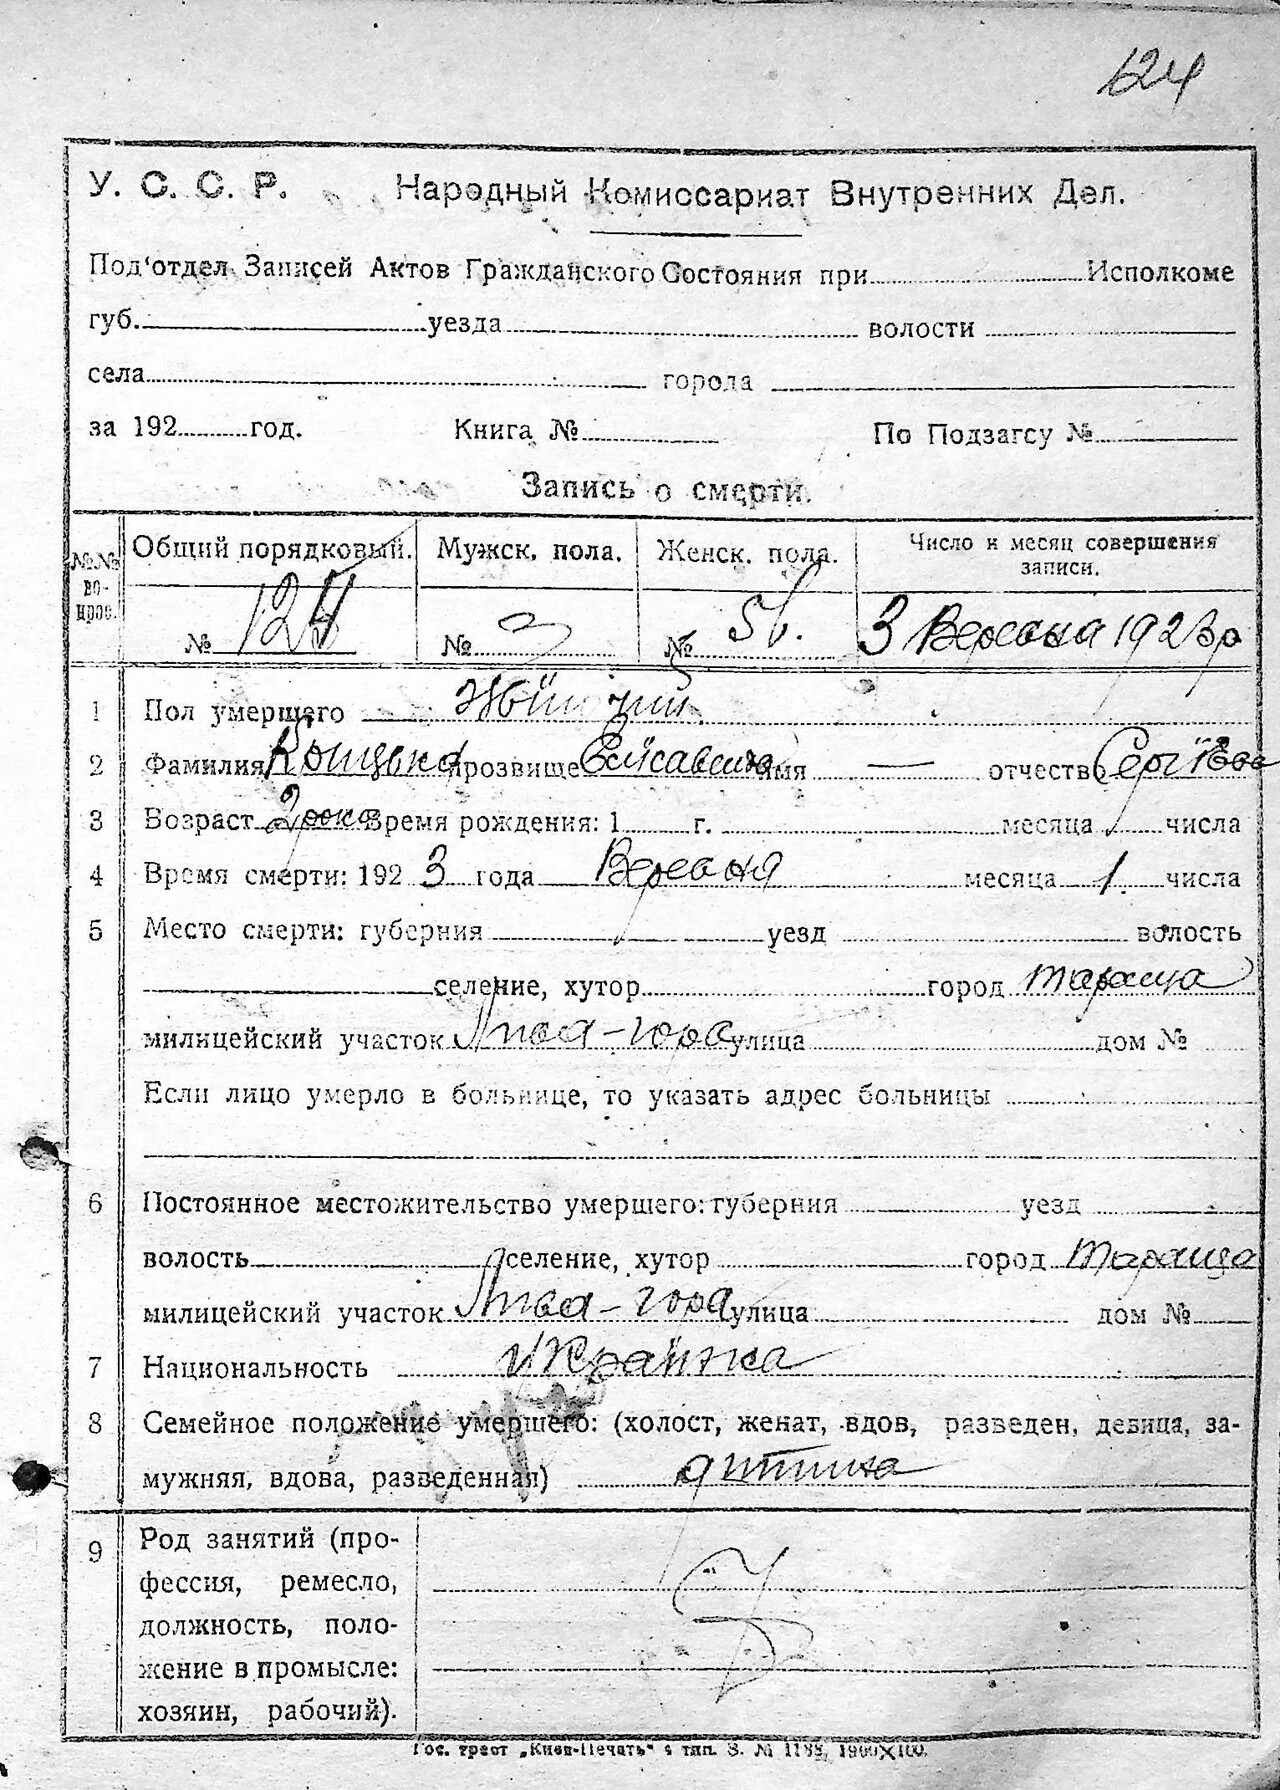 124
У. С. С. Р. Народный Комиссариат Внутренних Дел.
Под'отдел Записей Актов Гражданского Состояния при Исполкоме
губ. уезда волости
села города
за 192 год. Книга № По Подзагсу №
Запись о смерти.
№№ вопрос. Общий порядковый. Мужск. пола. Женск. пола. Число и месяц совершения записи.
№ 124 № № 56. 3 Вересня 1923 р
1 Пол умершего Жіночий
2 Фамилия прозвище Єлісавета имя — отчество Сергіївна
3 Возраст 2 роки Время рождения: 1 г. месяца числа
4 Время смерти: 192 3 года Вересня месяца 1. числа
5 Место смерти: губерния уезд волость
селение, хутор город Тараща
милицейский участок гора улица дом №
Если лицо умерло в больнице, то указать адрес больницы
6 Постоянное местожительство умершего: губерния уезд
волость селение, хутор город Тараща
милицейский участок гора улица дом №
7 Национальность Українка
8 Семейное положение умершего: (холост, женат, вдов, разведен, девица, за-
мужняя, вдова, разведенная) дитина
9 Род занятий (про-
фессия, ремесло,
должность, поло-
жение в промысле:
хозяин, рабочий).
Гос. трест „Киев-Печать" 4 тип. З. № 1188, 1900×100.